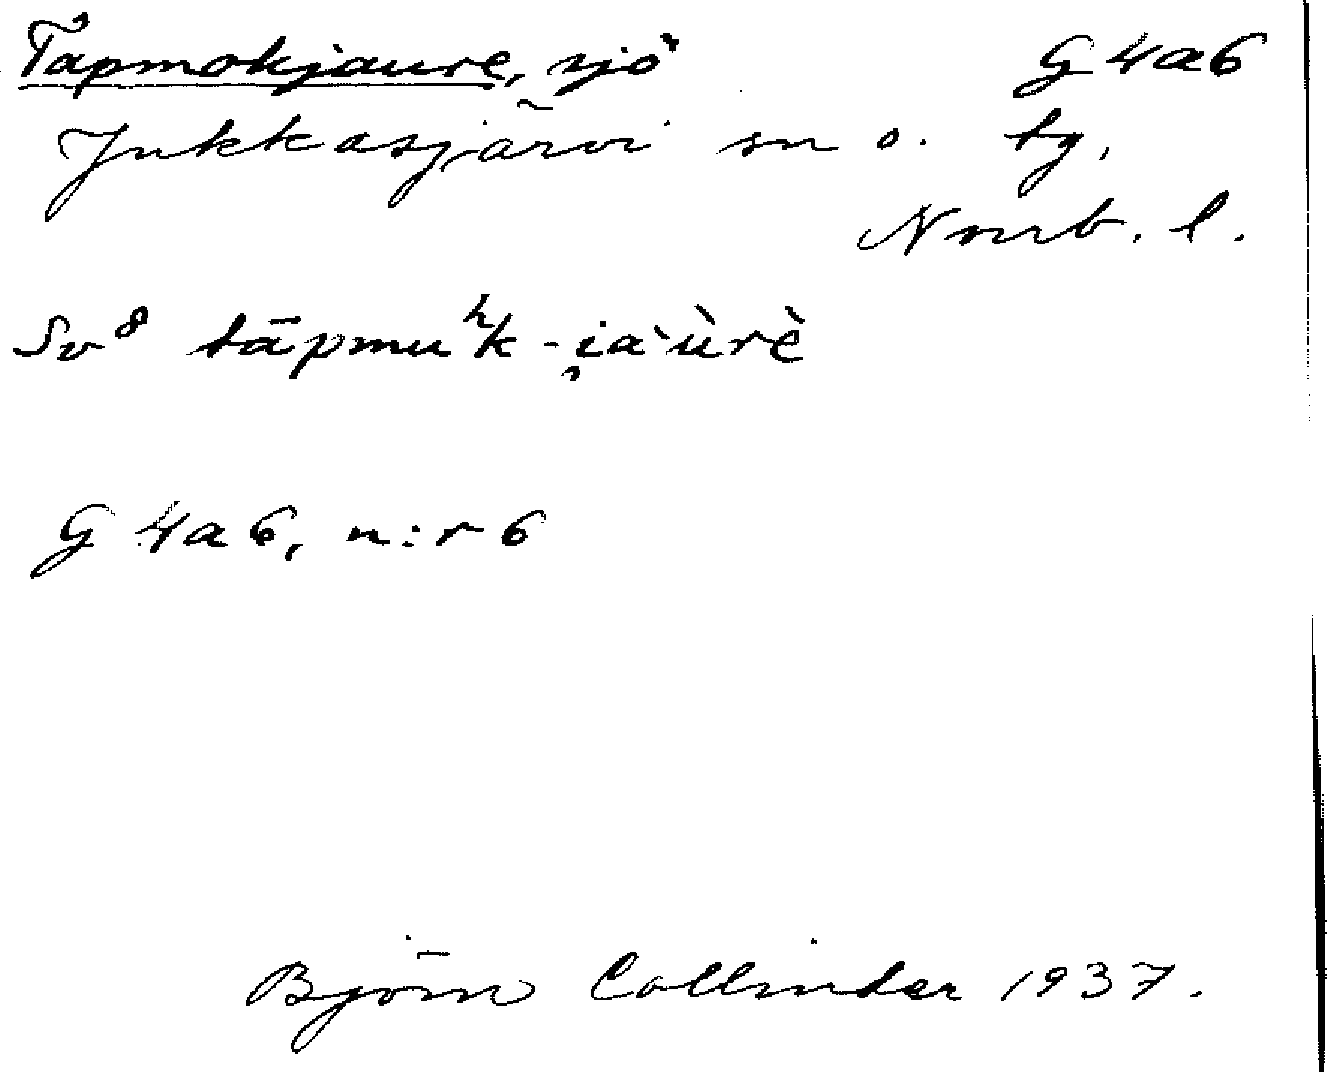 Tapmokjaure, sjö G 4a6
Jukkasjärvi sn o. tg,
Norrb. l.
Sv⁸ tāpmuʰk-i̯a`ùrè
G 4a6, n:r 6
Björn Collinder 1937.